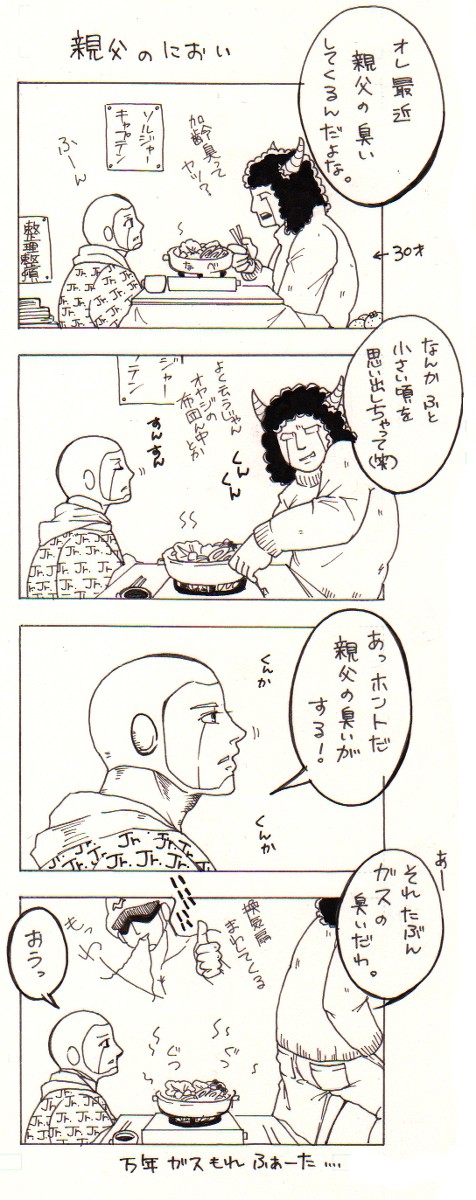 親父のにおい
オレ最近
親父の臭い
してくるんだよな。
←30才
加齢臭って
ヤツ?
ソルジャー
キャプテン
ふーん
整理整頓
なべ
Jr. Jr. Jr.
なんかふと
小さい頃を
思い出しちゃって(笑)
よく云うじゃん
オヤジの
布団ん中とか
くん
くん
ジャー
テン
すんすん
Jr. Jr. Jr.
あっホントだ
親父の臭いが
する!。
くんか
くんか
Jr. Jr. Jr.
あー
それたぶん
ガスの
臭いだわ。
換気扇
まわしてくる
おうっ
ぐつ
ぐつ
Jr. Jr. Jr.
万年ガスもれふぁーた....